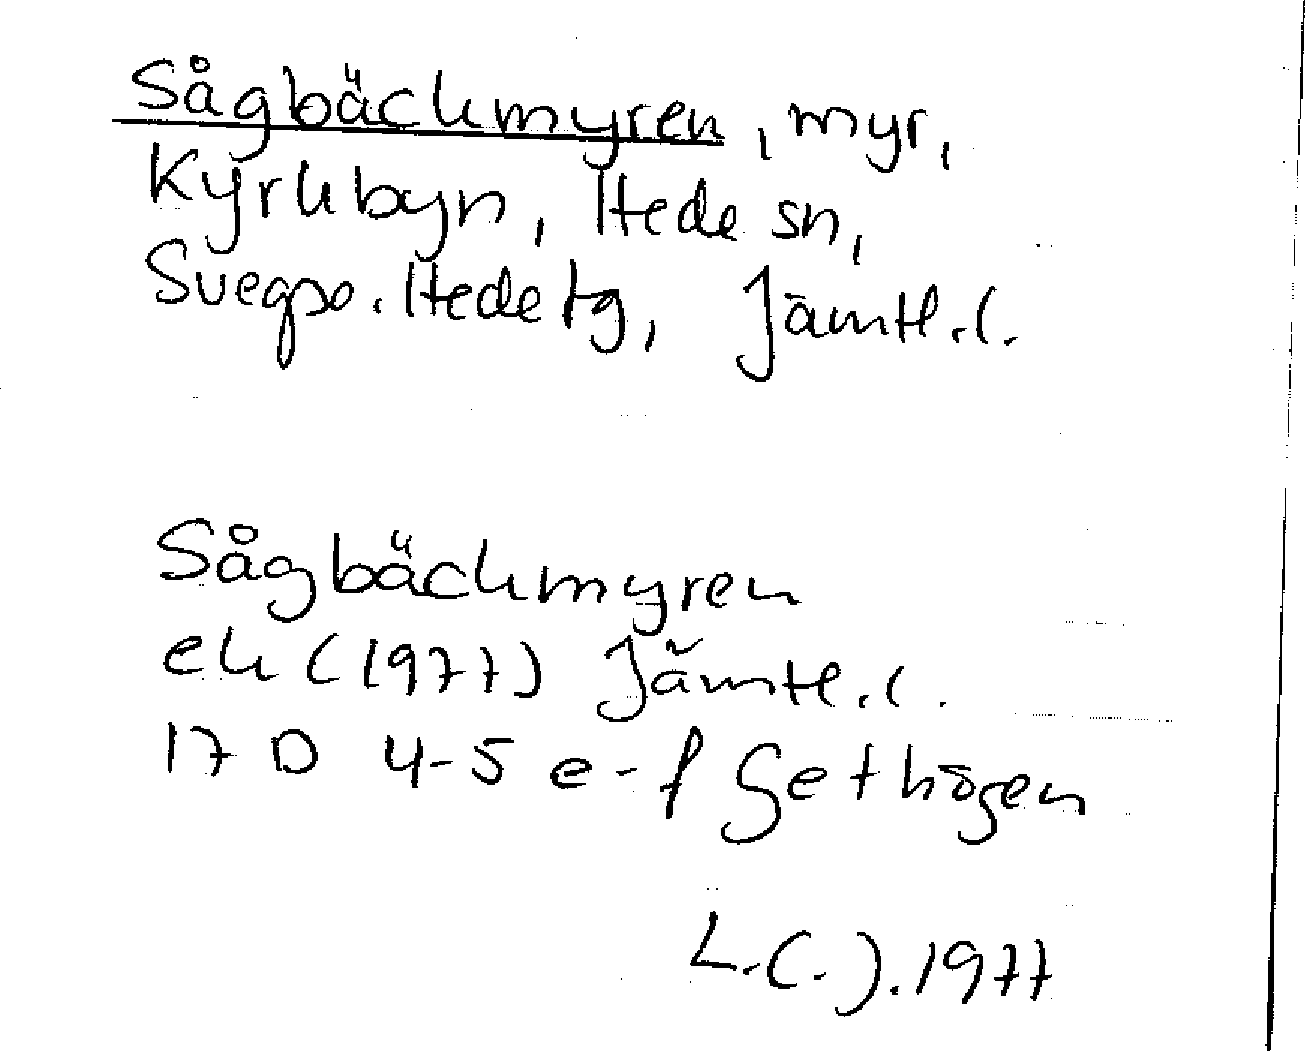 Sågbäckmyren, myr,
Kyrkbyn, Hede sn,
Svegs o. Hede tg, Jämtl. l.
Sågbäckmyren
ek (1977) Jämtl. l.
17 D 4-5 e-f Gethögen
L.C.J. 1977